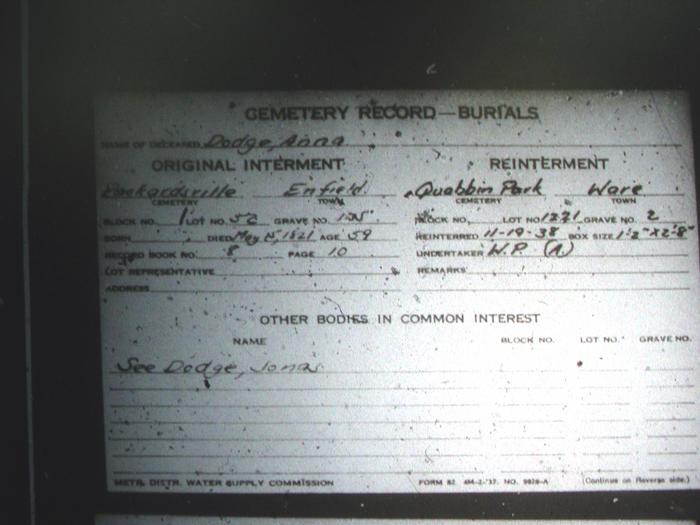 CEMETERY RECORD—BURIALS
NAME OF DECEASED Dodge, Anna
ORIGINAL INTERMENT REINTERMENT
Packardsville Enfield Quabbin Park Ware
CEMETERY TOWN CEMETERY TOWN
BLOCK NO. 1 LOT NO. 52 GRAVE NO. BLOCK NO. LOT NO. 1271 GRAVE NO. 2
BORN DIED May 15, 1821 AGE 59 REINTERRED 11-19-38 BOX SIZE 1'2"X2'8"
RECORD BOOK NO. 8 PAGE 10 UNDERTAKER W.P. (A)
LOT REPRESENTATIVE REMARKS
ADDRESS
OTHER BODIES IN COMMON INTEREST
NAME BLOCK NO. LOT NO. GRAVE NO.
See Dodge, Jonas
METR. DISTR. WATER SUPPLY COMMISSION FORM 82 4M-2-'37. NO. 9828-A (Continue on Reverse side.)